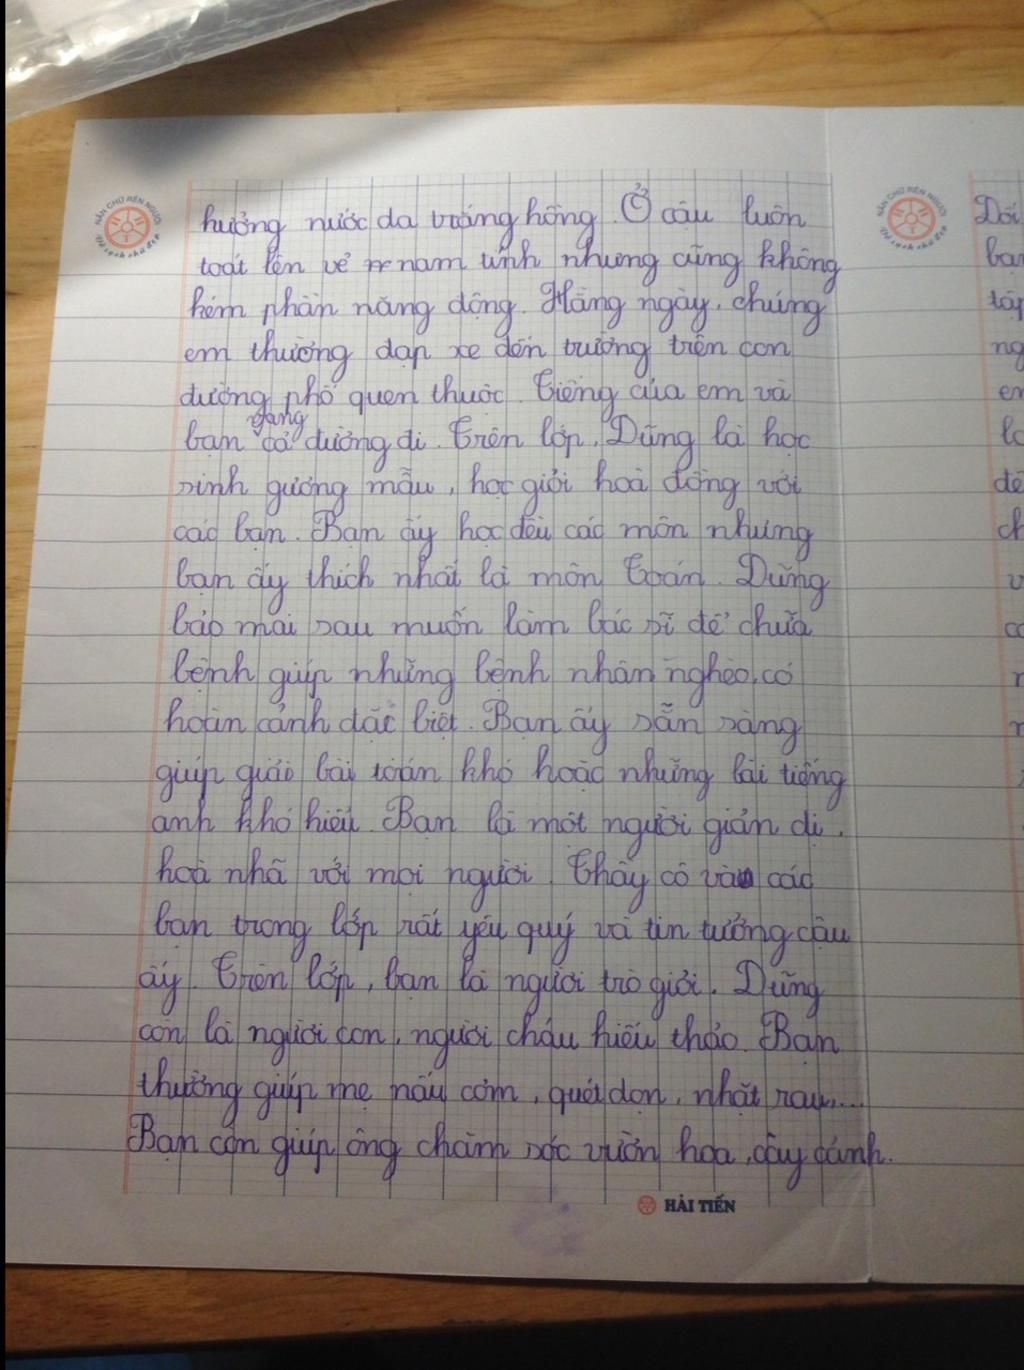 NẮN CHỮ RÈN NGƯỜI
Vở sạch chữ đẹp
hưởng nước da trắng hồng. Ở cậu luôn
toát lên vẻ nam tính nhưng cũng không
kém phần năng động. Hằng ngày, chúng
em thường đạp xe đến trường trên con
đường phố quen thuộc. Tiếng của em và
bạn vang cả đường đi. Trên lớp, Dũng là học
sinh gương mẫu, học giỏi hoà đồng với
các bạn. Bạn ấy học đều các môn nhưng
bạn ấy thích nhất là môn Toán. Dũng
bảo mai sau muốn làm bác sĩ để chữa
bệnh giúp những bệnh nhân nghèo, có
hoàn cảnh đặc biệt. Bạn ấy sẵn sàng
giúp giải bài toán khó hoặc những bài tiếng
anh khó hiểu. Bạn là một người giản dị,
hoà nhã với mọi người. Thầy cô và các
bạn trong lớp rất yêu quý và tin tưởng cậu
ấy. Trên lớp, bạn là người trò giỏi. Dũng
còn là người con, người cháu hiếu thảo. Bạn
thường giúp mẹ nấu cơm, quét dọn, nhặt rau....
Bạn còn giúp ông chăm sóc vườn hoa, cây cảnh.
HẢI TIẾN